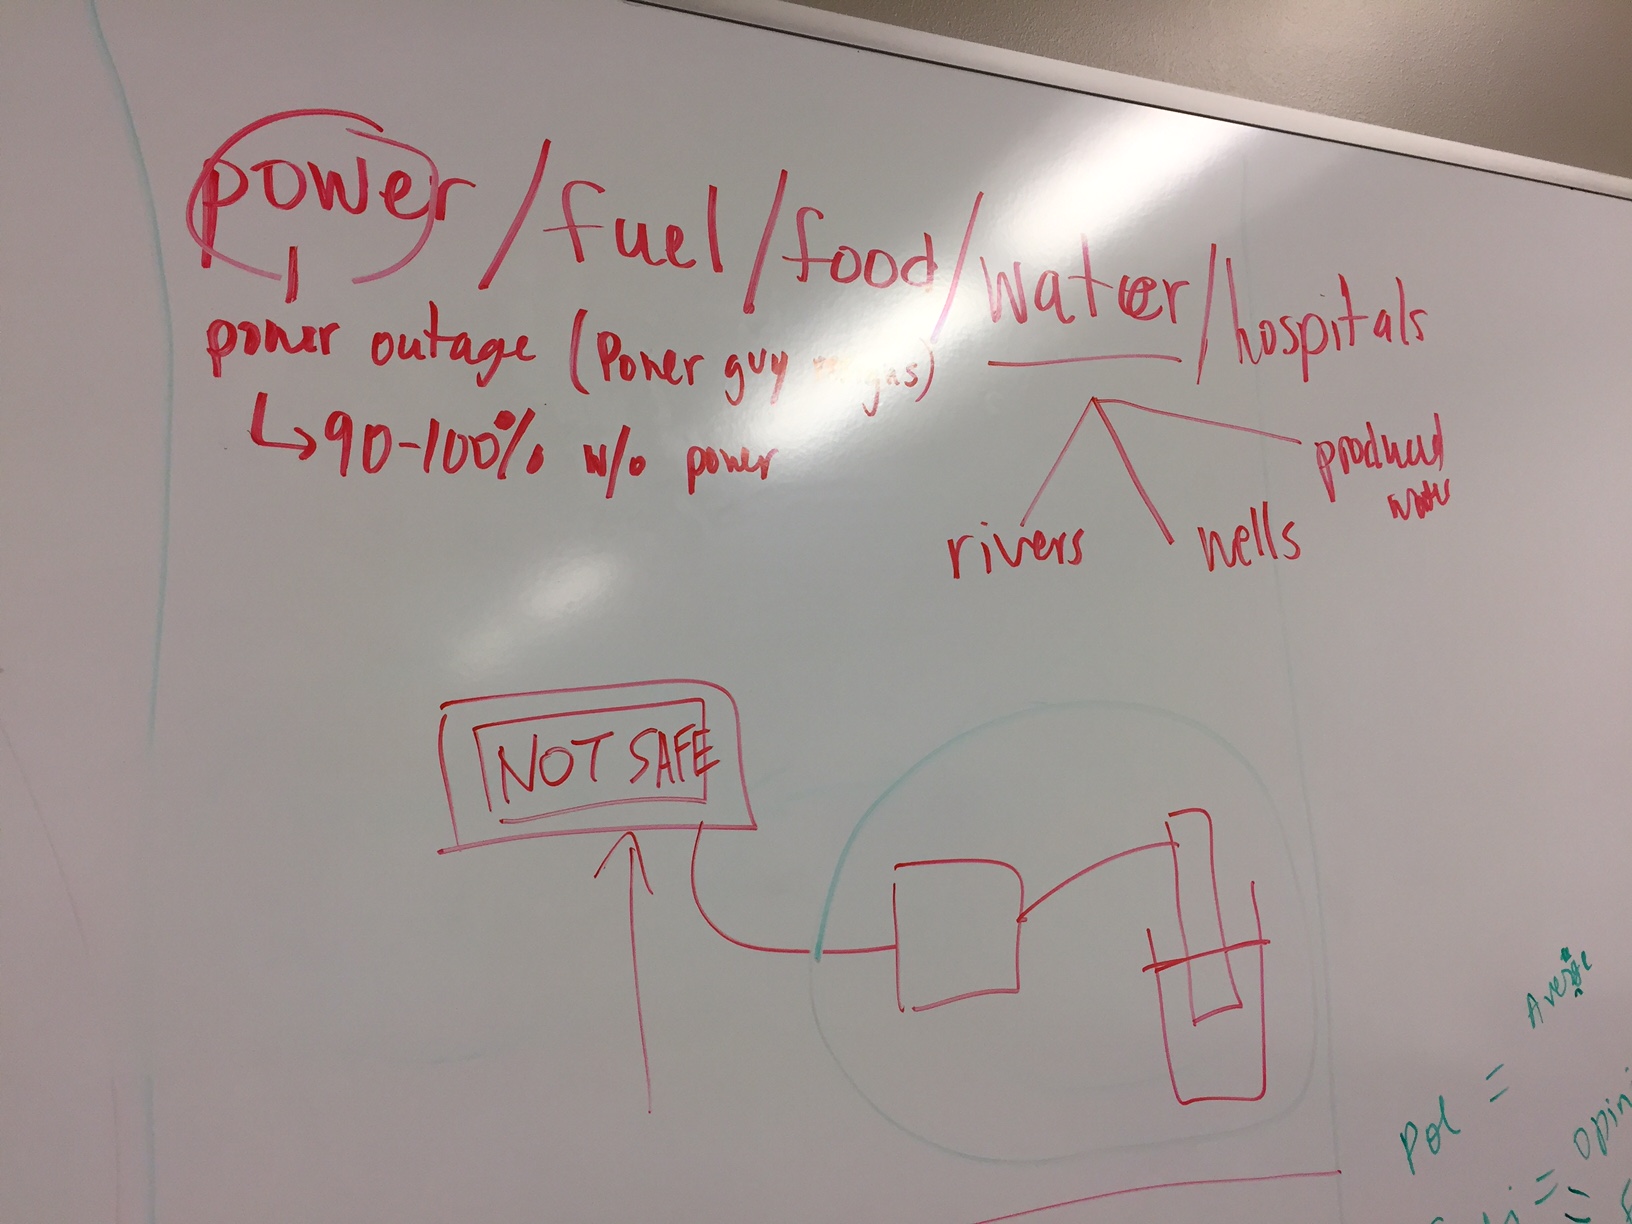 power / fuel / food / water / hospitals
power outage (Power guy gas)
90-100% w/o power
rivers
wells
produced
water
NOT SAFE
Pol =
=